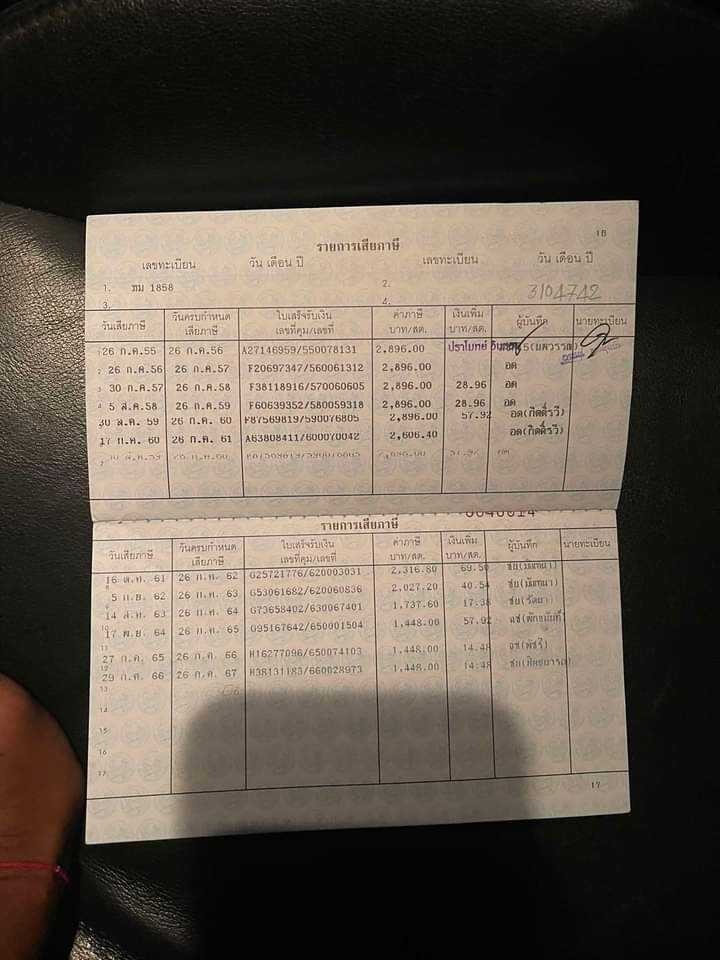 18
รายการเสียภาษี
เลขทะเบียน วัน เดือน ปี เลขทะเบียน วัน เดือน ปี
1. ฆม 1858 2.
3. 4. 3104742
วันเสียภาษี วันครบกำหนด เสียภาษี ใบเสร็จรับเงิน เลขที่คุม/เลขที่ ค่าภาษี บาท/สต. เงินเพิ่ม บาท/สต. ผู้บันทึก นายทะเบียน
1 26 ก.ค.55 26 ก.ค.56 A27146959/550078131 2,896.00 ปราโมทย์
2 26 ก.ค.56 26 ก.ค.57 F20697347/560061312 2,896.00 อด
3 30 ก.ค.57 26 ก.ค.58 F38118916/570060605 2,896.00 28.96 อด
4 5 ส.ค.58 26 ก.ค.59 F60639352/580059318 2,896.00 28.96 อด
30 ส.ค. 59 26 ก.ค. 60 F87569819/590076805 2,896.00 57.92 อด(กิตติ์รวี)
17 ก.ค. 60 26 ก.ค. 61 A63808411/600070042 2,606.40 อด(กิตติ์รวี)
7
รายการเสียภาษี
วันเสียภาษี วันครบกำหนด เสียภาษี ใบเสร็จรับเงิน เลขที่คุม/เลขที่ ค่าภาษี บาท/สต. เงินเพิ่ม บาท/สต. ผู้บันทึก นายทะเบียน
16 ต.ค. 61 26 ก.ค. 62 G25721776/620003031 2,316.80 69.50
5 ก.ย. 62 26 ก.ค. 63 G53061682/620060836 2,027.20 40.54
14 ส.ค. 63 26 ก.ค. 64 G73658402/630067401 1,737.60 17.38
10 17 พ.ย. 64 26 ก.ค. 65 G95167642/650001504 1,448.00 57.92
11 27 ก.ค. 65 26 ก.ค. 66 H16277096/650074103 1,448.00 14.48
29 ก.ค. 66 26 ก.ค. 67 H38131183/660028973 1,448.00 14.48
13
14
15
16
17
17